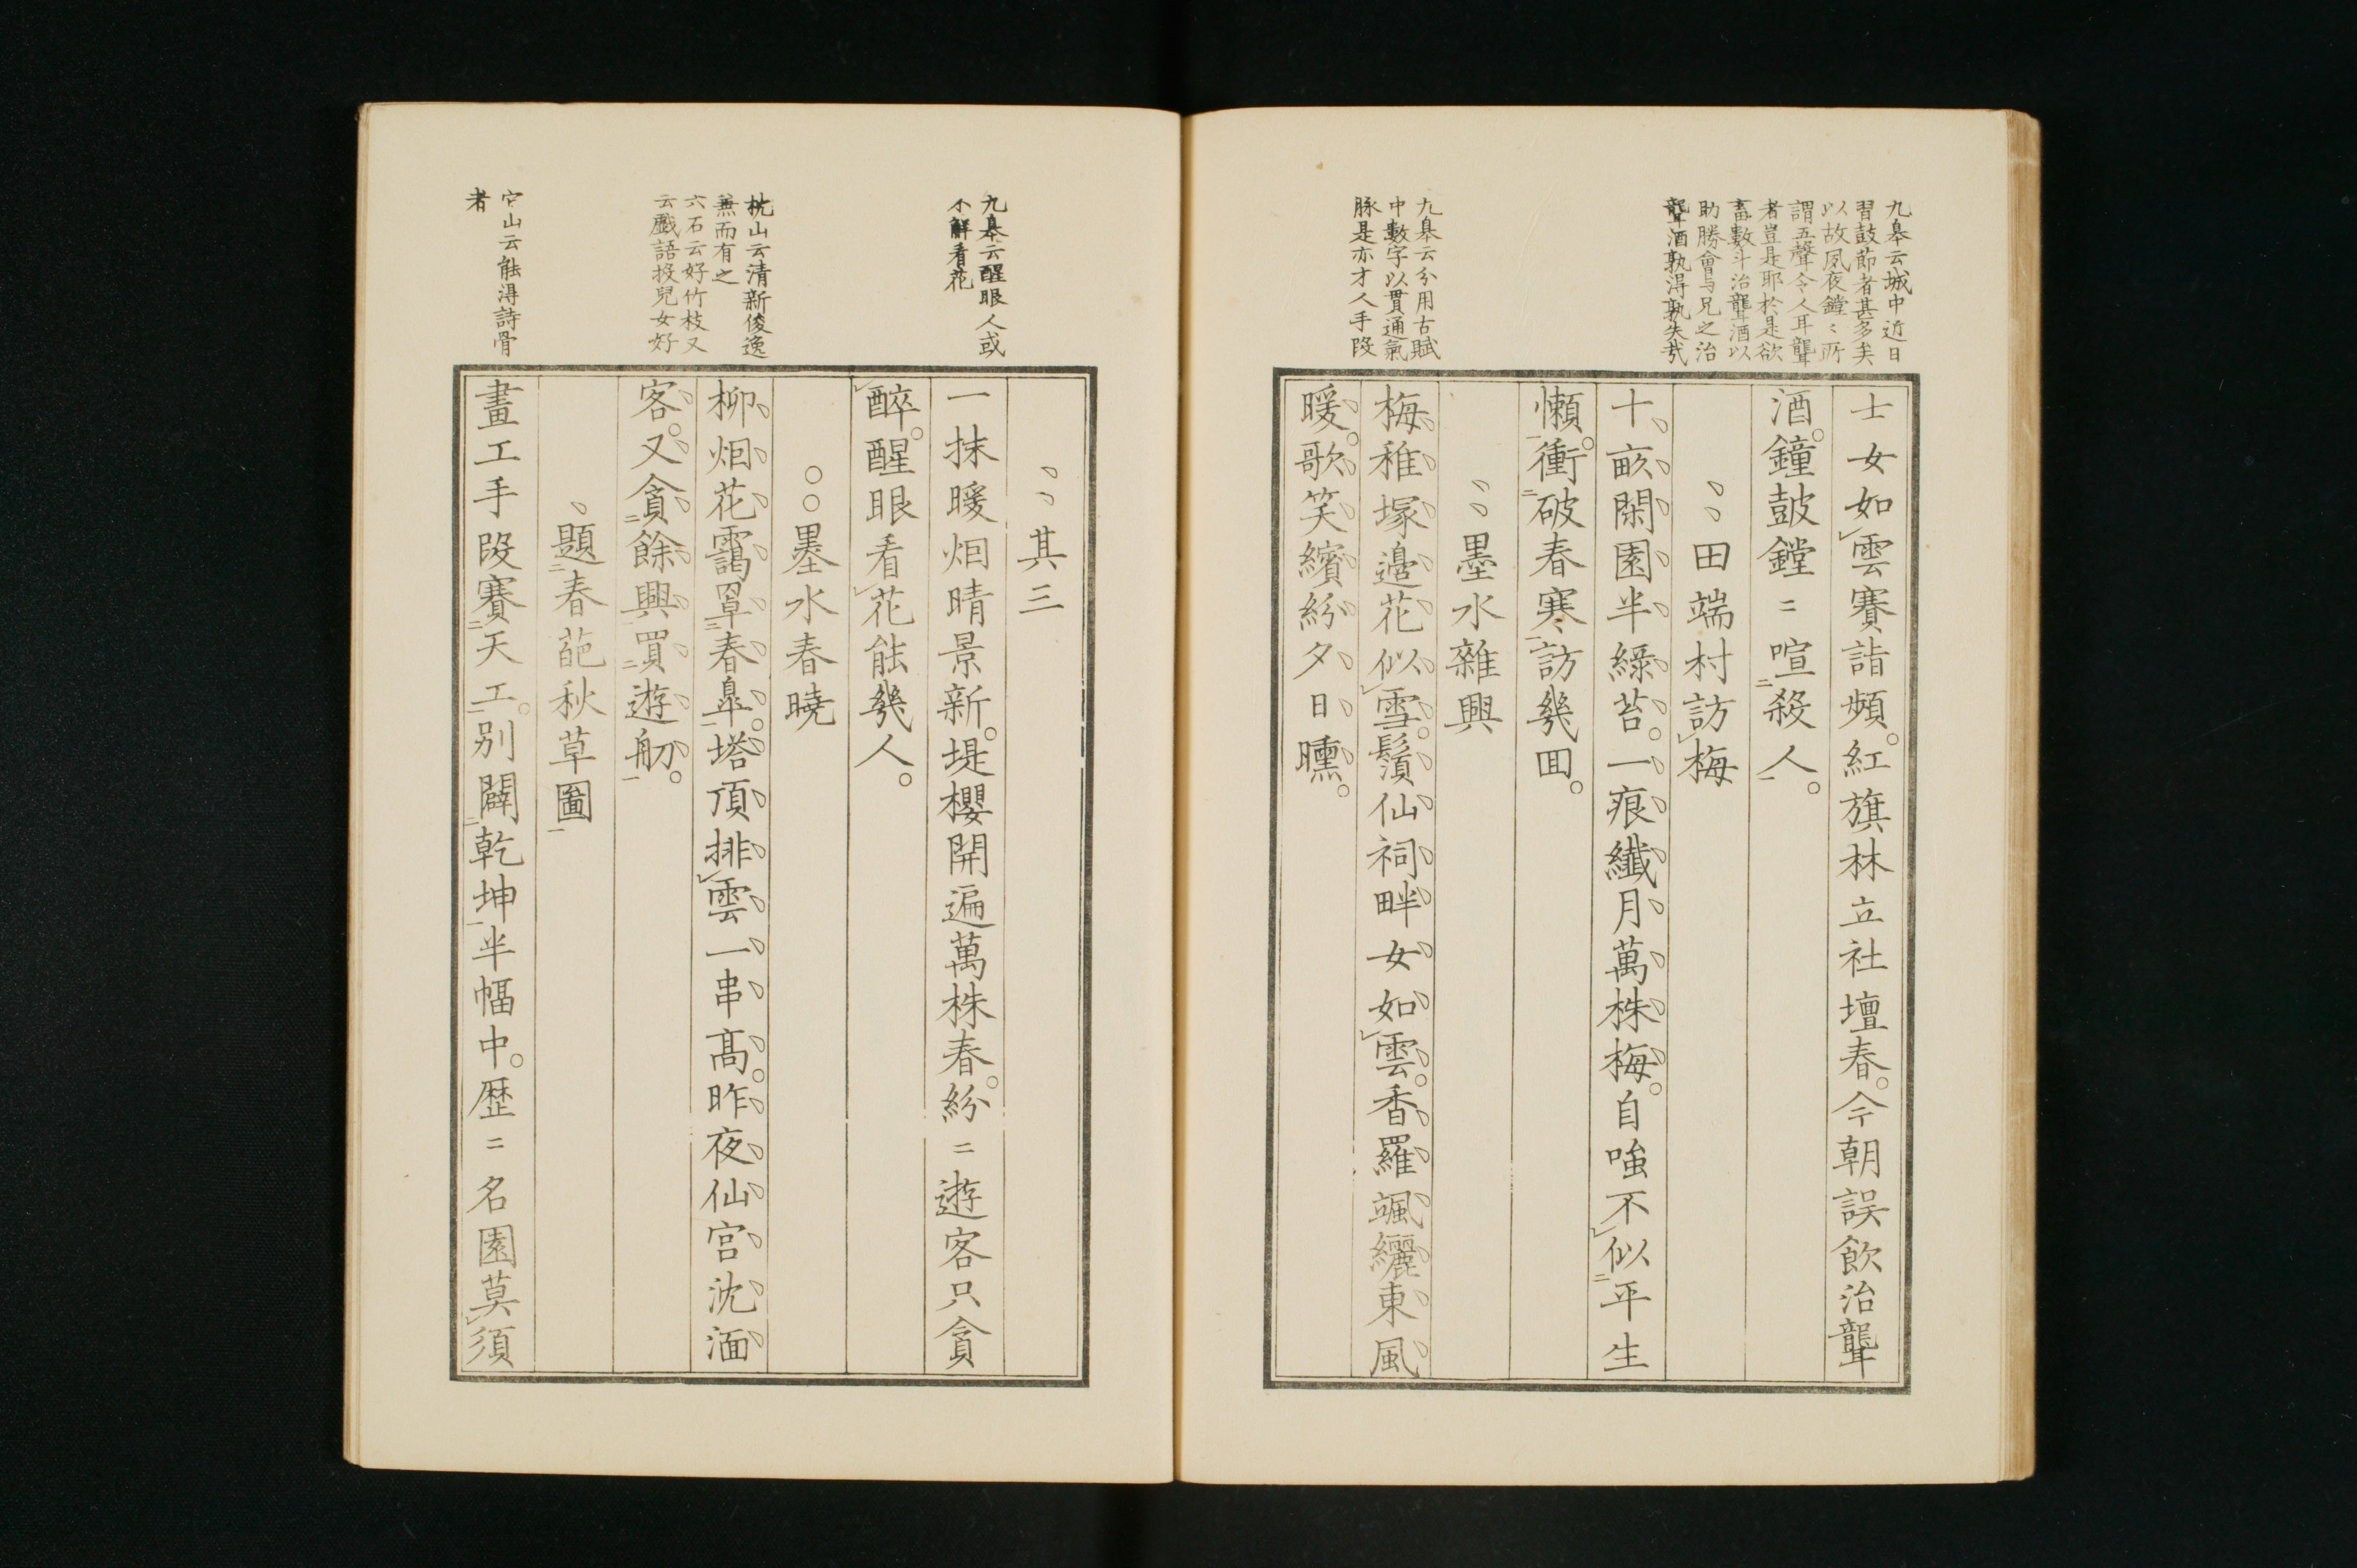 九皋云城中近日
習鼓節者甚多矣
以故夙夜鏜〻所
謂五聲令人耳聾
者豈是耶於是欲
畜數斗治聾酒以
助勝會与兄之治
聾酒孰得孰失哉
士女如雲賽詣頻。紅旗林立社壇春。今朝誤飮治聾
酒。鐘鼓鏜〻喧殺人。
田端村訪梅
十畝閑園半綠苔。一痕纖月萬株梅。自嗤不似平生
懶。衝破春寒訪幾回。
九皋云分用古賦
中數字以貫通氣
脉是亦才人手段
墨水雜興
梅稚塚邉花似雪。鬚仙祠畔女如雲。香羅颯纚東風
暖。歌笑繽紛夕日曛。
其三
九皋云醒眼人或
不解看花
一抹暖烟晴景新。堤櫻開遍萬株春。紛〻遊客只貪
醉。醒眼看花能幾人。
墨水春曉
枕山云清新俊逸
兼而有之
六石云好竹枝又
云戲語投兒女好
柳烟花靄罩春皐。塔頂排雲一串髙。昨夜仙宮沈湎
客。又貪餘興買遊舠。
題春葩秋草圖
宕山云能得詩骨
者
畫工手段賽天工。別闢乾坤半幅中。歷〻名園莫須